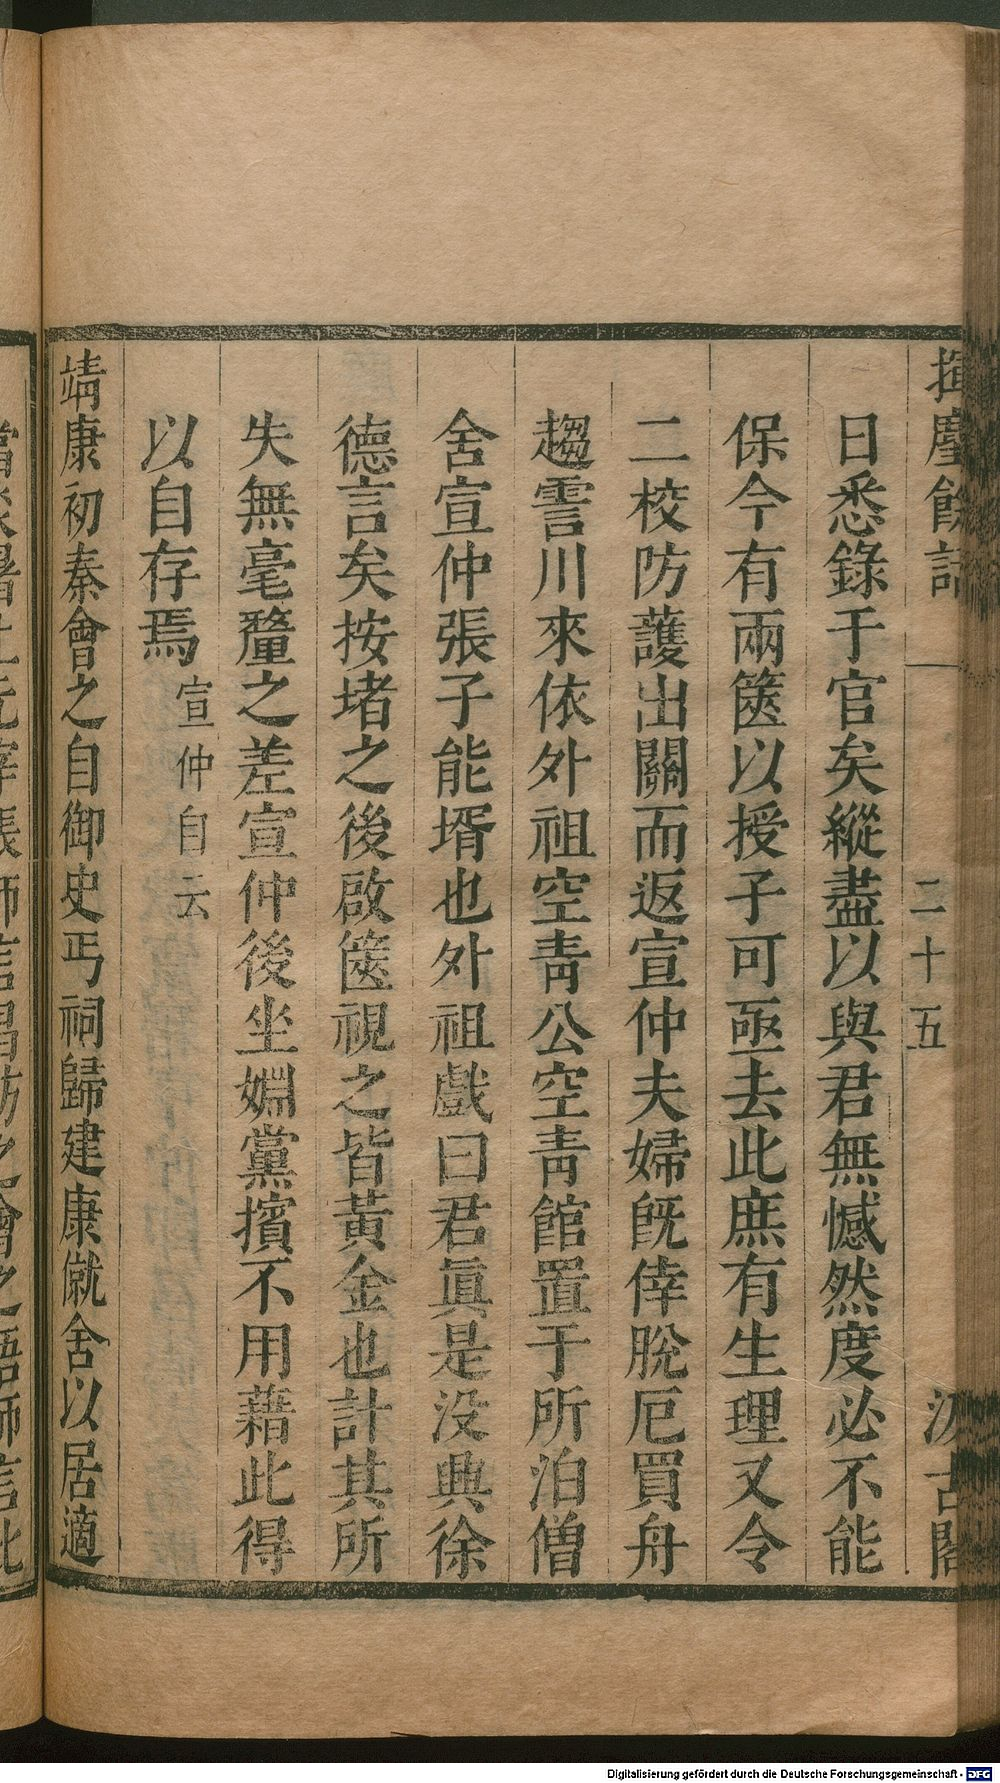 揮麈餘話
二十五
汲古閣
日悉錄于官矣縱盡以與君無憾然度必不能
保今有兩篋以授子可亟去此庶有生理又令
二校防護出關而返宣仲夫婦旣倖脫厄買舟
趨霅川來依外祖空靑公空靑館置于所泊僧
舍宣仲張子能壻也外祖戲曰君眞是没興徐
德言矣按堵之後啟篋視之皆黃金也計其所
失無毫釐之差宣仲後坐婣黨擯不用藉此得
以自存焉宣仲自云
靖康初秦會之自御史丐祠歸建康僦舍以居適
Digitalisierung gefördert durch die Deutsche Forschungsgemeinschaft - DFG